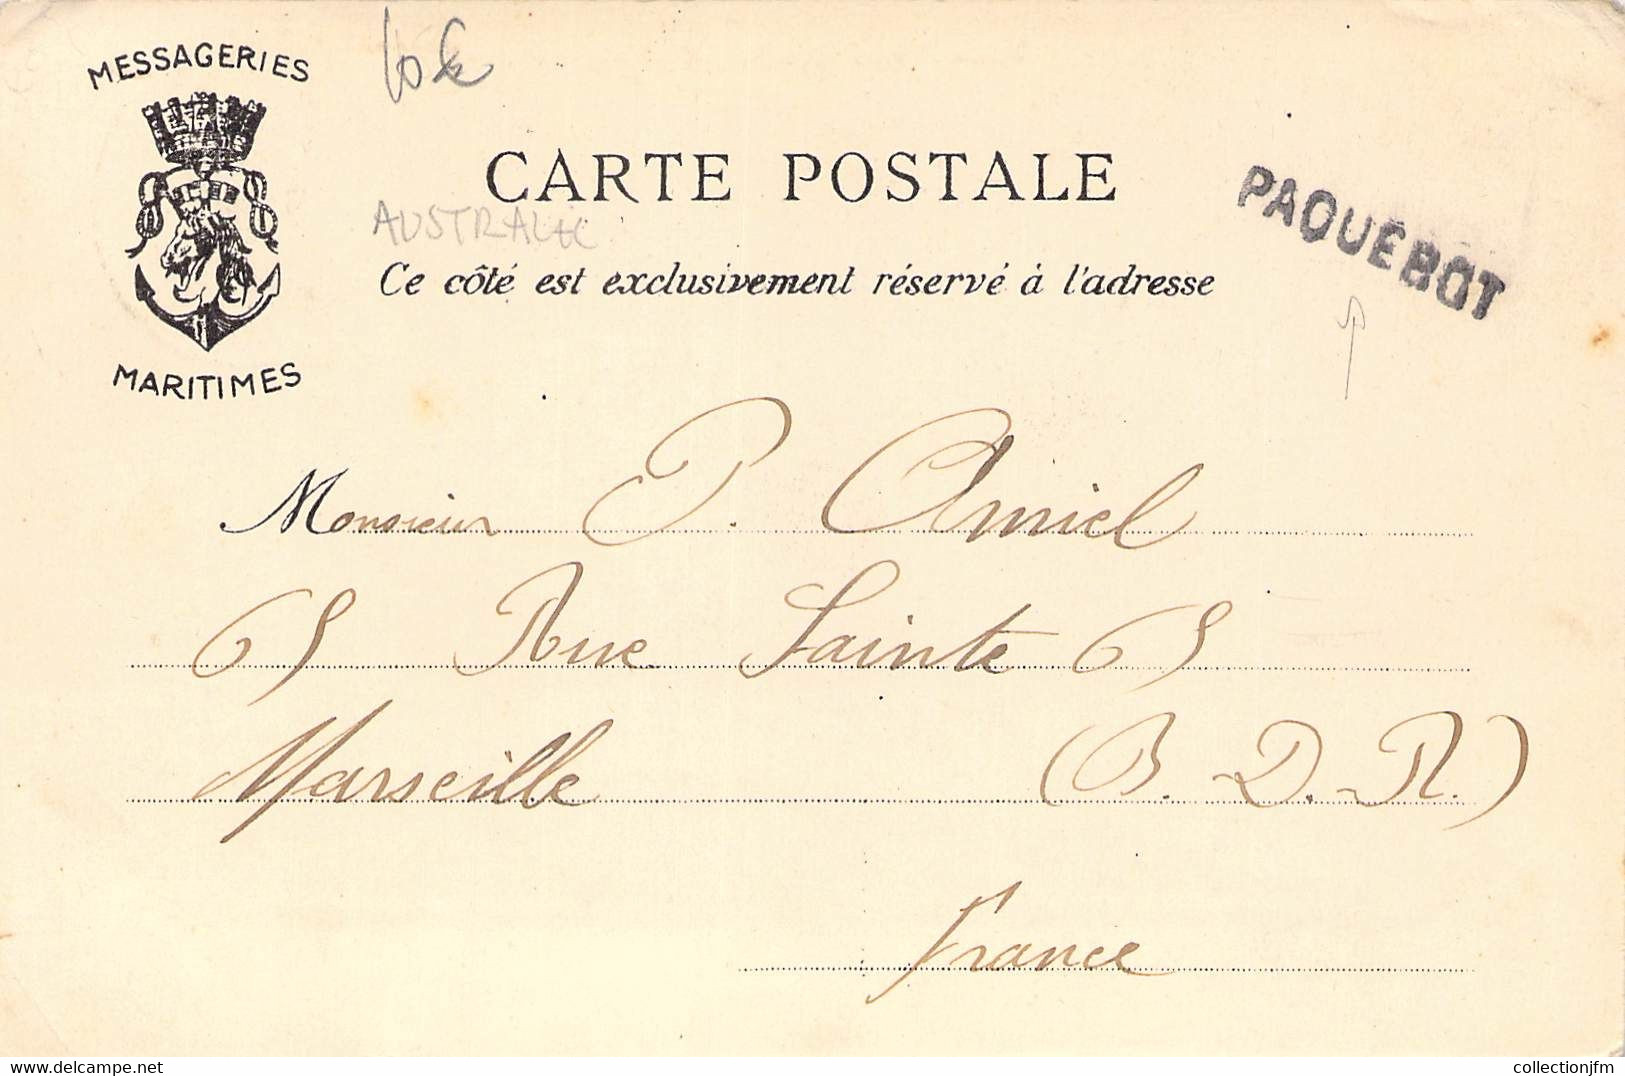 MESSAGERIES
MARITIMES
CARTE POSTALE
AUSTRALIE
PAQUEBOT
Ce côté est exclusivement réservé à l'adresse
Monsieur P. Amiel
65 Rue Sainte 65
Marseille (B. D. R.)
France
collectionjfm